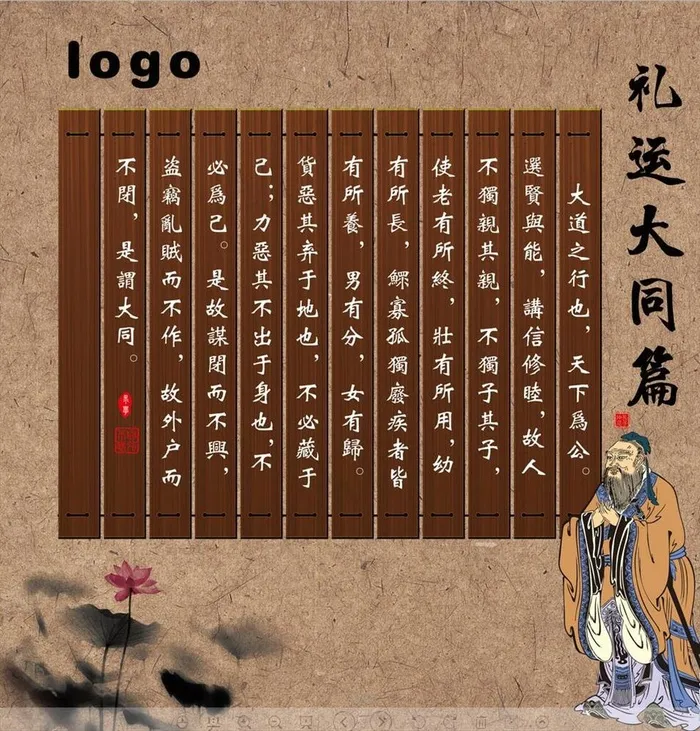 logo
礼运大同篇
大道之行也，天下爲公。
選賢與能，講信修睦，故人
不獨親其親，不獨子其子，
使老有所終，壯有所用，幼
有所長，鰥寡孤獨廢疾者皆
有所養，男有分，女有歸。
貨惡其弃于地也，不必藏于
己；力惡其不出于身也，不
必爲己。是故謀閉而不興，
盗竊亂賊而不作，故外户而
不閉，是謂大同。